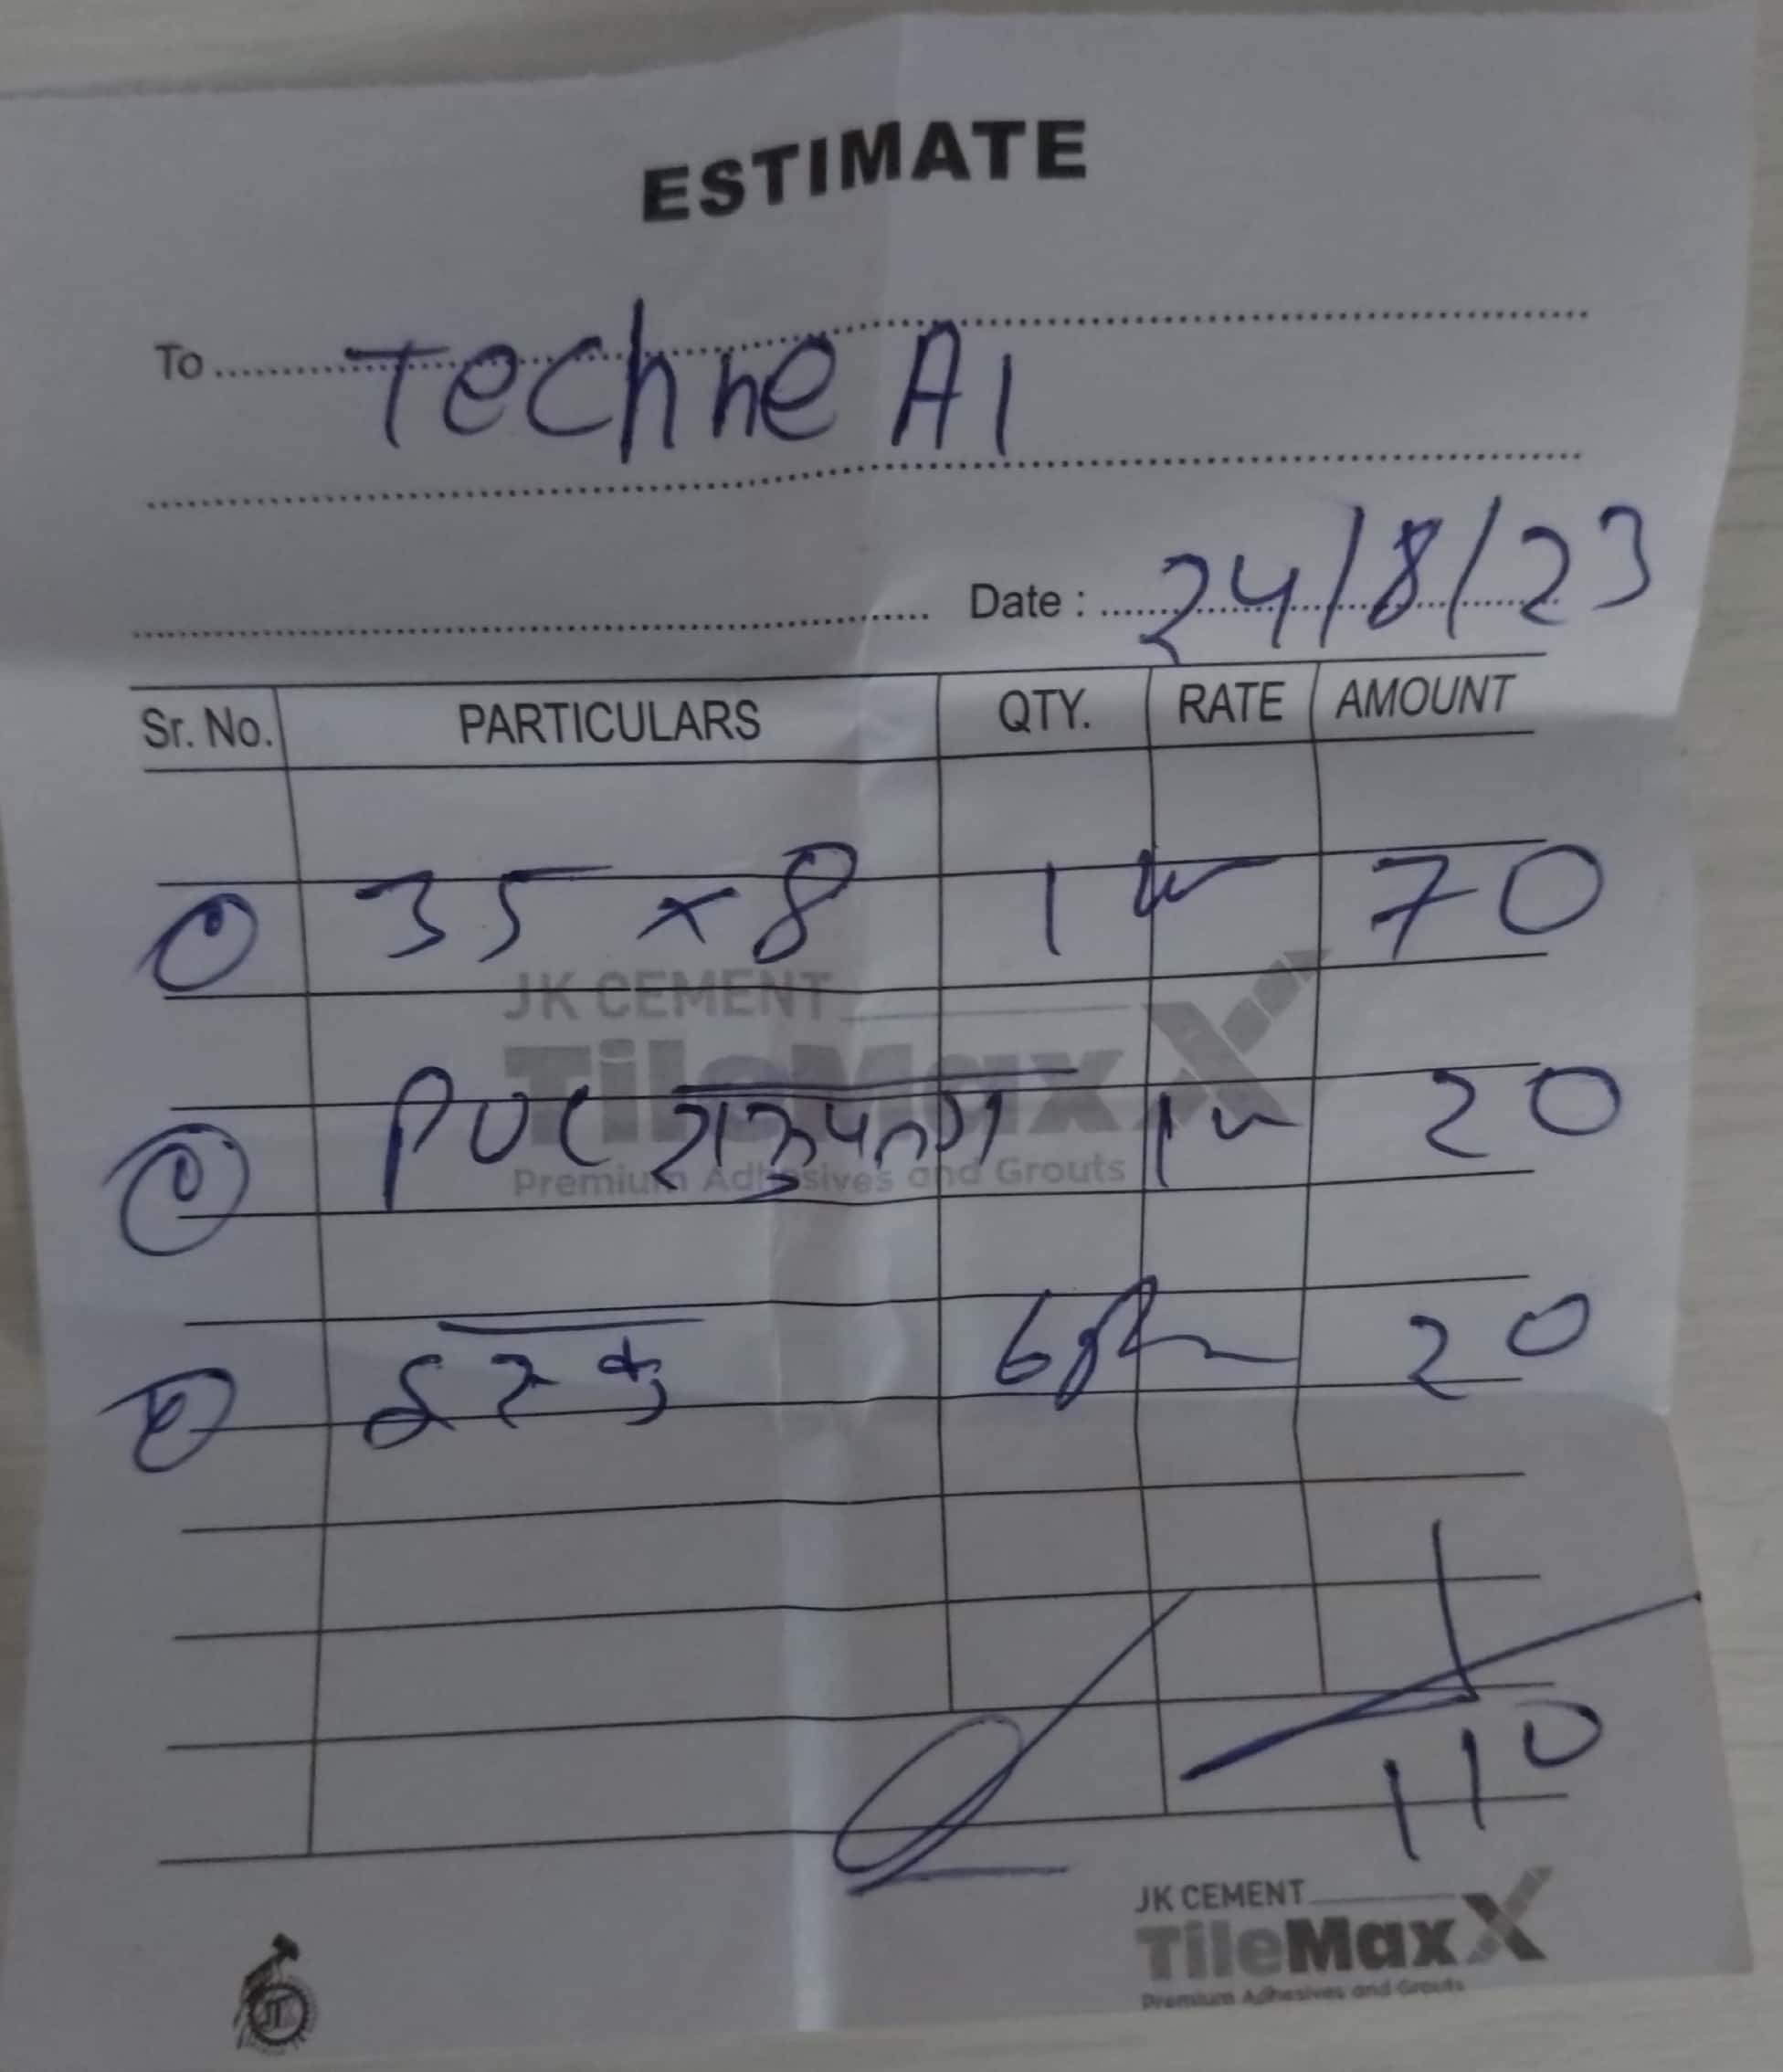 ESTIMATE
To Techne AI
Date : 24/8/23
Sr. No. PARTICULARS QTY. RATE AMOUNT
35 x 8 1 70
JK CEMENT
TileMaxX
PVC 1 20
Premium Adhesives and Grouts
6 20
110
JK CEMENT
TileMaxX
Premium Adhesives and Grouts